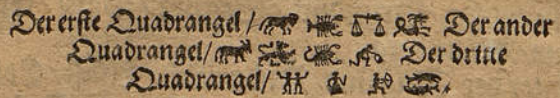 Der erste Quadrangel / ♈ ♋ ♎ ♑ Der ander
Quadrangel / ♉ ♌ ♏ ♒ Der dritte
Quadrangel / ♊ ♍ ♐ ♓.